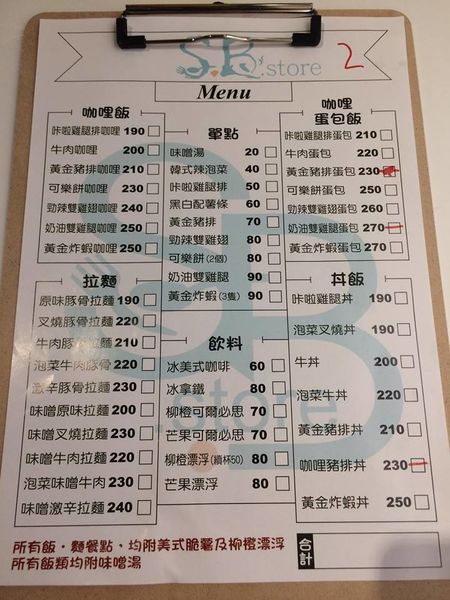 S.B's.store
2
Menu
咖哩飯
咔啦雞腿排咖哩 190
牛肉咖哩 200
黃金豬排咖哩 210
可樂餅咖哩 230
勁辣雙雞翅咖哩 240
奶油雙雞腿咖哩 250
黃金炸蝦咖哩 250
單點
味噌湯 20
韓式辣泡菜 40
咔啦雞腿排 50
黑白配薯條 60
黃金豬排 70
勁辣雙雞翅 80
可樂餅(2個) 80
奶油雙雞腿 90
黃金炸蝦(3隻) 90
咖哩
蛋包飯
咔啦雞腿排蛋包 210
牛肉蛋包 220
黃金豬排蛋包 230
可樂餅蛋包 250
勁辣雙雞翅蛋包 260
奶油雙雞腿蛋包 270
黃金炸蝦蛋包 270
拉麵
原味豚骨拉麵 190
叉燒豚骨拉麵 220
牛肉豚骨拉麵 210
泡菜牛肉豚骨 220
激辛豚骨拉麵 230
味噌原味拉麵 200
味噌叉燒拉麵 230
味噌牛肉拉麵 220
泡菜味噌牛肉 230
味噌激辛拉麵 240
飲料
冰美式咖啡 60
冰拿鐵 80
柳橙可爾必思 70
芒果可爾必思 70
柳橙漂浮(續杯50) 80
芒果漂浮 80
丼飯
咔啦雞腿丼 190
泡菜叉燒丼 190
牛丼 200
泡菜牛丼 220
黃金豬排丼 210
咖哩豬排丼 230
黃金炸蝦丼 250
所有飯．麵餐點，均附美式脆薯及柳橙漂浮
所有飯類均附味噌湯
合計